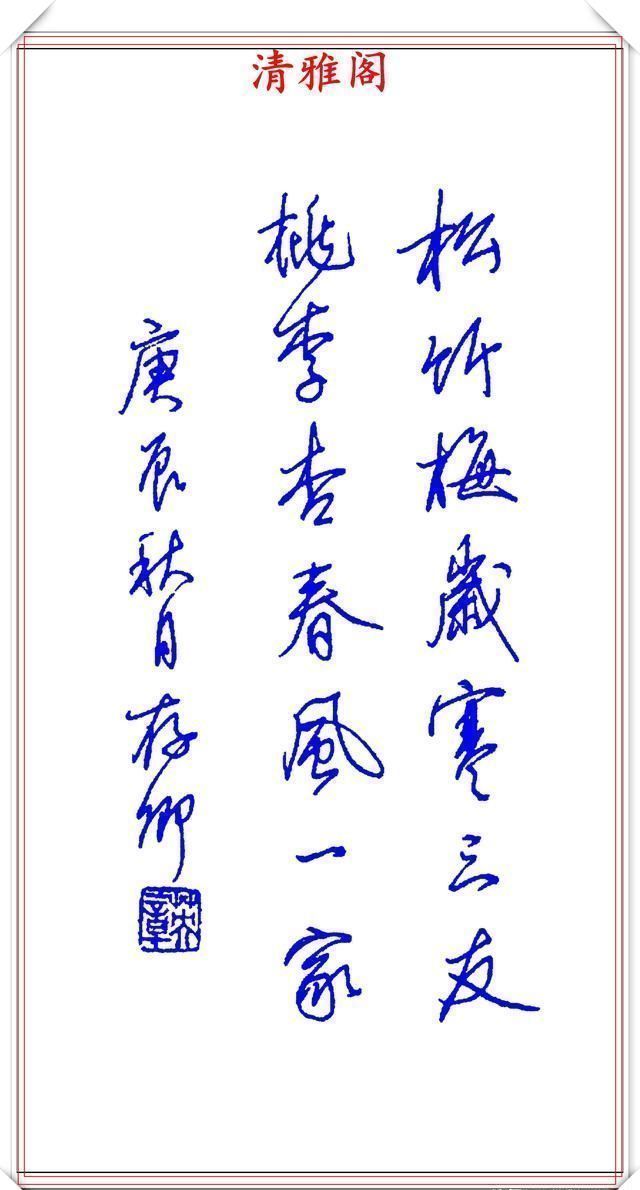 清雅阁
松竹梅歲寒三友
桃李杏春風一家
庚辰秋月存卿